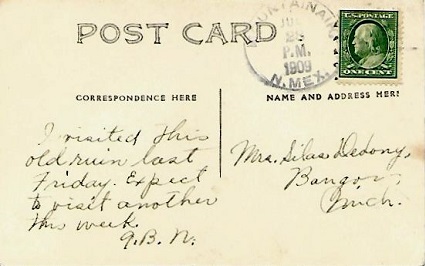 POST CARD
MOUNTAINAIR
JUL
26
P.M.
1909
N. MEX.
U.S. POSTAGE
ONE CENT
CORRESPONDENCE HERE
NAME AND ADDRESS HERE
I visited this
old ruin last
Friday. Expect
to visit another
this week.
G.B.N.
Mrs. Silas
Bangor,
Mich.